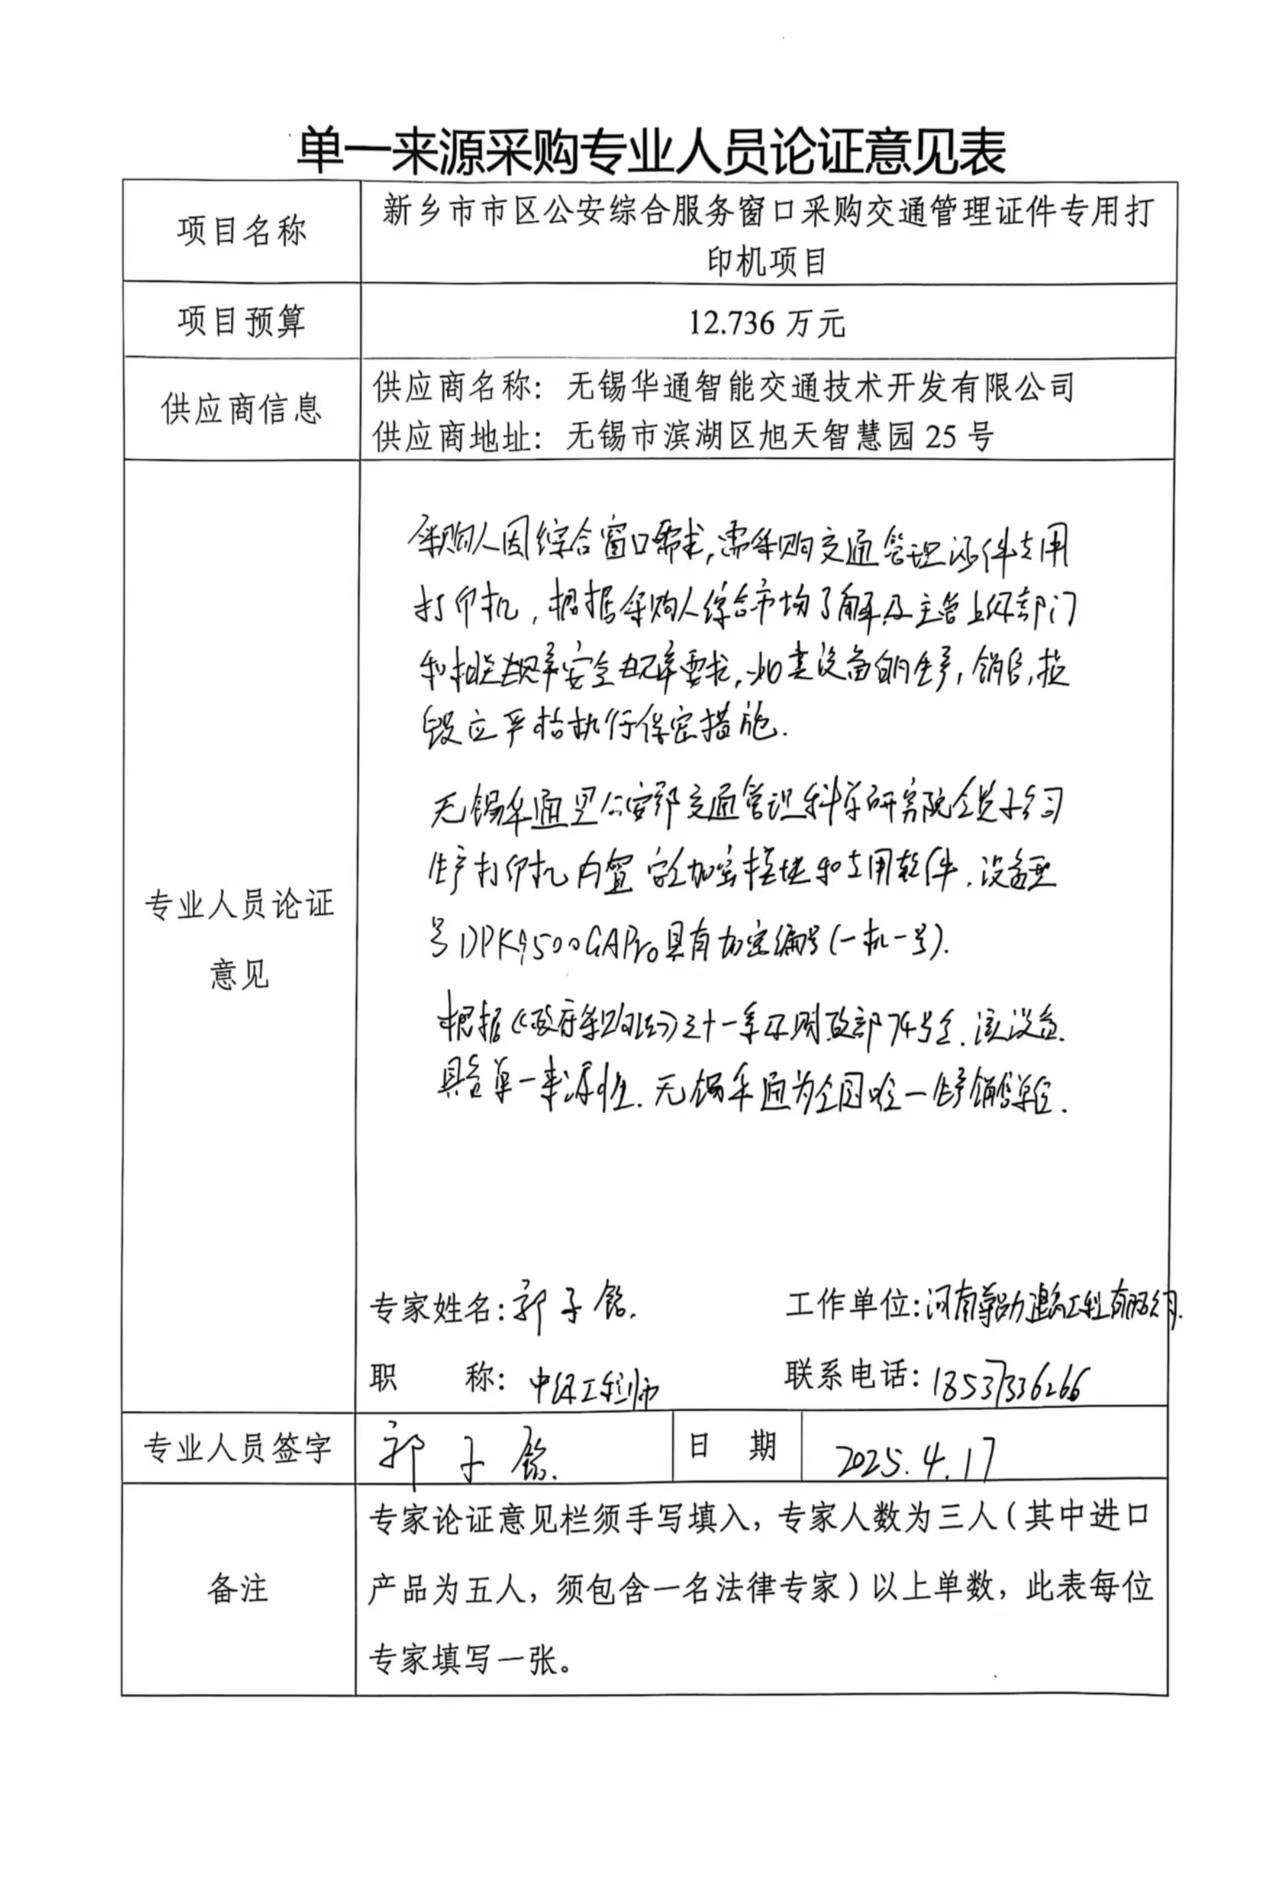 单一来源采购专业人员论证意见表
项目名称
新乡市市区公安综合服务窗口采购交通管理证件专用打
印机项目
项目预算
12.736 万元
供应商信息
供应商名称：无锡华通智能交通技术开发有限公司
供应商地址：无锡市滨湖区旭天智慧园 25 号
专业人员论证
意见
采购人因综合窗口需求,需采购交通管理证件专用
打印机,根据采购人综合市场了解及主管上级部门
和相关规章安全规章要求,此类设备的生产,销售,
应严格执行保密措施.
无锡华通是公安部交通管理科学研究院全资子公司
生产打印机内置安全加密模块和专用软件.设备型
号DPK9500GAPro具有加密编号(一机一号).
根据《政府采购法》三十一条及财政部74号令.该设备
具备单一来源性.无锡华通为全国唯一生产销售单位.
专家姓名：郭子铭.
工作单位：河南 工程有限公司.
职 称：中级工程师
联系电话：18537336266
专业人员签字
郭子铭.
日 期
2025.4.17
备注
专家论证意见栏须手写填入，专家人数为三人（其中进口
产品为五人，须包含一名法律专家）以上单数，此表每位
专家填写一张。